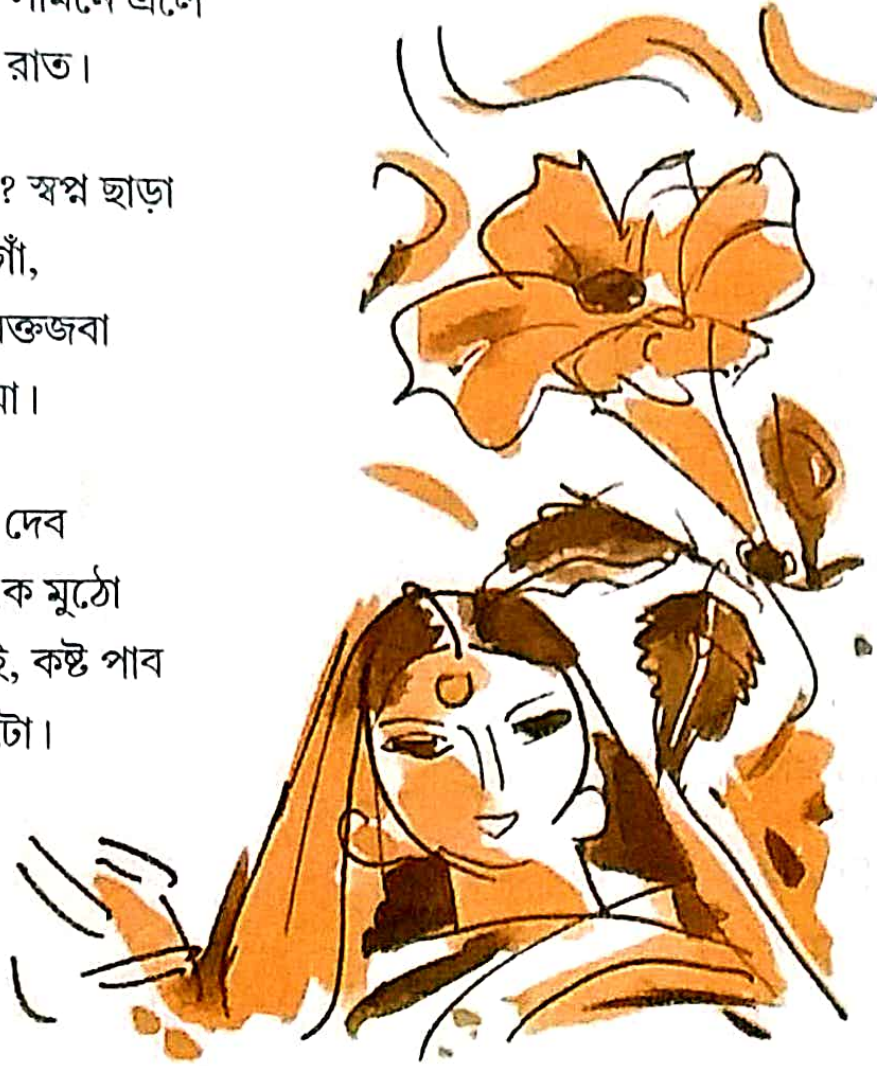 এলে
রাত।
? স্বপ্ন ছাড়া
গাঁ,
ক্তজবা
া।
দেব
ক মুঠো
ই, কষ্ট পাব
টা।